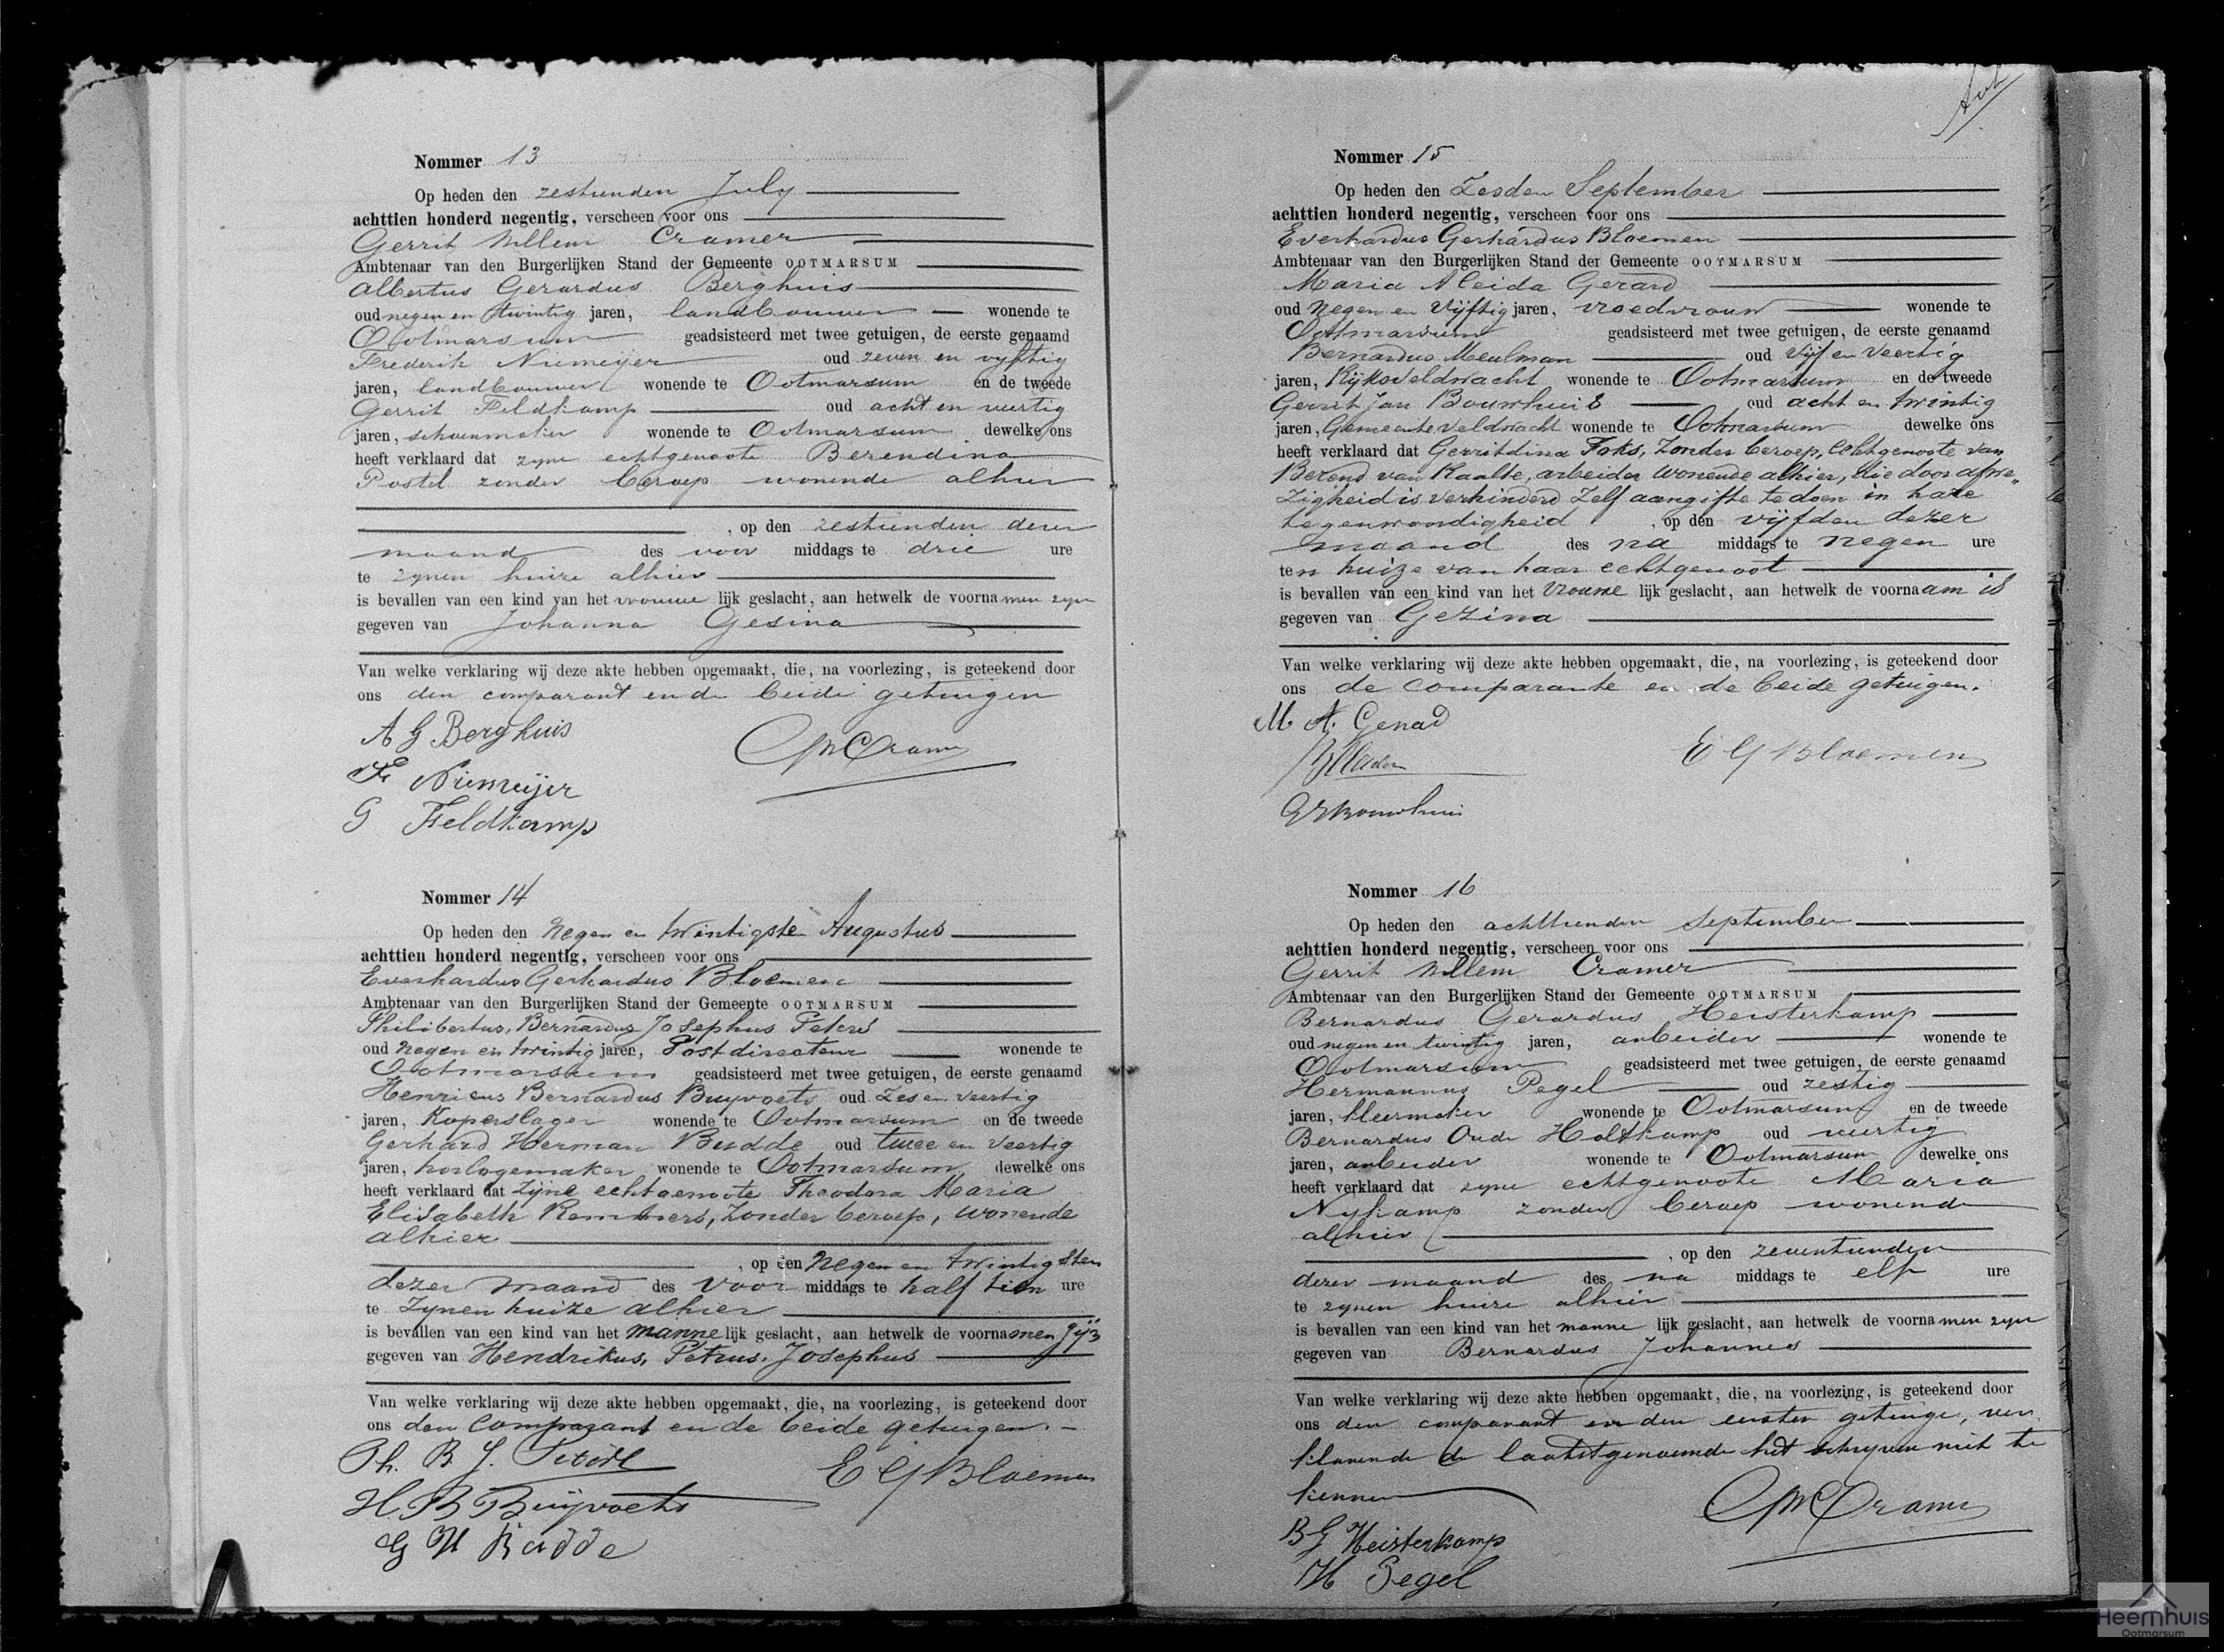 Nommer 13
Op heden den zestienden July
achttien honderd negentig, verscheen voor ons
Gerrit Willem Cramer
Ambtenaar van den Burgerlijken Stand der Gemeente OOTMARSUM
Albertus Gerardus Berghuis
oud negen en twintig jaren, landbouwer wonende te
Ootmarsum geadsisteerd met twee getuigen, de eerste genaamd
Frederik Niemeijer oud zeven en vyftig
jaren, landbouwer wonende te Ootmarsum en de tweede
Gerrit Feldkamp oud acht en veertig
jaren, schoenmaker wonende te Ootmarsum dewelke ons
heeft verklaard dat zyne echtgenoote Berendina
Postel zonder beroep wonende alhier
, op den zestienden dezer
maand des voor middags te drie ure
te zynen huize alhier
is bevallen van een kind van het vrouwe lijk geslacht, aan hetwelk de voorna men zyn
gegeven van Johanna Gesina
Van welke verklaring wij deze akte hebben opgemaakt, die, na voorlezing, is geteekend door
ons den comparant en de beide getuigen
A G Berghuis
GWCramer
F Niemeijer
G Feldkamp
Nommer 14
Op heden den Negen en twintigste Augustus
achttien honderd negentig, verscheen voor ons
Everhardus Gerhardus Bloemen
Ambtenaar van den Burgerlijken Stand der Gemeente OOTMARSUM
Philibertus, Bernardus Josephus Peters
oud Negen en twintig jaren, Postdirecteur wonende te
Ootmarsum geadsisteerd met twee getuigen, de eerste genaamd
Henricus Bernardus Buyvoets oud Zes en Veertig
jaren, Koperslager wonende te Ootmarsum en de tweede
Gerhard Herman Budde oud twee en Veertig
jaren, horlogemaker wonende te Ootmarsum dewelke ons
heeft verklaard dat Zijne echtgenoote Theodora Maria
Elisabeth Remmers, Zonder beroep, wonende
alhier
, op den Negen en twintigsten
dezer maand des Voor middags te half tien ure
te Zynen huize alhier
is bevallen van een kind van het manne lijk geslacht, aan hetwelk de voornamen Zijn
gegeven van Hendrikus, Petrus, Josephus
Van welke verklaring wij deze akte hebben opgemaakt, die, na voorlezing, is geteekend door
ons den Comparant en de beide getuigen. -
Ph. B. J. Peters
E G Bloemen
H B Buijvoets
G H Budde
Nommer 15
Op heden den Zesden September
achttien honderd negentig, verscheen voor ons
Everhardus Gerhardus Bloemen
Ambtenaar van den Burgerlijken Stand der Gemeente OOTMARSUM
Maria Aleida Gerard
oud Negen en Vijftig jaren, vroedvrouw wonende te
Ootmarsum geadsisteerd met twee getuigen, de eerste genaamd
Bernardus Meulman oud Vijf en Veertig
jaren, Rijksveldwacht wonende te Ootmarsum en de tweede
Gerrit Jan Bouwhuis oud acht en twintig
jaren, Gemeenteveldwacht wonende te Ootmarsum dewelke ons
heeft verklaard dat Gerritdina Foks, Zonder beroep, echtgenoote van
Berend van Raalte, arbeider wonende alhier, die door afwe„
Zigheid is verhinderd Zelf aangifte te doen in hare
tegenwoordigheid , op den vijfden dezer
maand des na middags te negen ure
ten huize van haar echtgenoot
is bevallen van een kind van het Vrouwe lijk geslacht, aan hetwelk de voorna am is
gegeven van Gezina
Van welke verklaring wij deze akte hebben opgemaakt, die, na voorlezing, is geteekend door
ons de comparante en de beide getuigen.
M. A. Gerard
E G Bloemen
GJBouwhuis
Nommer 16
Op heden den achttienden September
achttien honderd negentig, verscheen voor ons
Gerrit Willem Cramer
Ambtenaar van den Burgerlijken Stand der Gemeente OOTMARSUM
Bernardus Gerardus Heisterkamp
oud negen en twintig jaren, arbeider wonende te
Ootmarsum geadsisteerd met twee getuigen, de eerste genaamd
Hermannus Pegel oud zestig
jaren, kleermaker wonende te Ootmarsum en de tweede
Bernardus Oude Holtkamp oud veertig
jaren, arbeider wonende te Ootmarsum dewelke ons
heeft verklaard dat zyne echtgenoote Maria
Nykamp zonder beroep wonende
alhier
, op den zeventienden
dezer maand des na middags te elf ure
te zynen huize alhier
is bevallen van een kind van het manne lijk geslacht, aan hetwelk de voorna men zyn
gegeven van Bernardus Johannes
Van welke verklaring wij deze akte hebben opgemaakt, die, na voorlezing, is geteekend door
ons den comparant en den eersten getuige, ver
klarende de laatstgenoemde het schryven niet te
kennen
GWCramer
B G Heisterkamp
H Pegel
Heemhuis
Ootmarsum